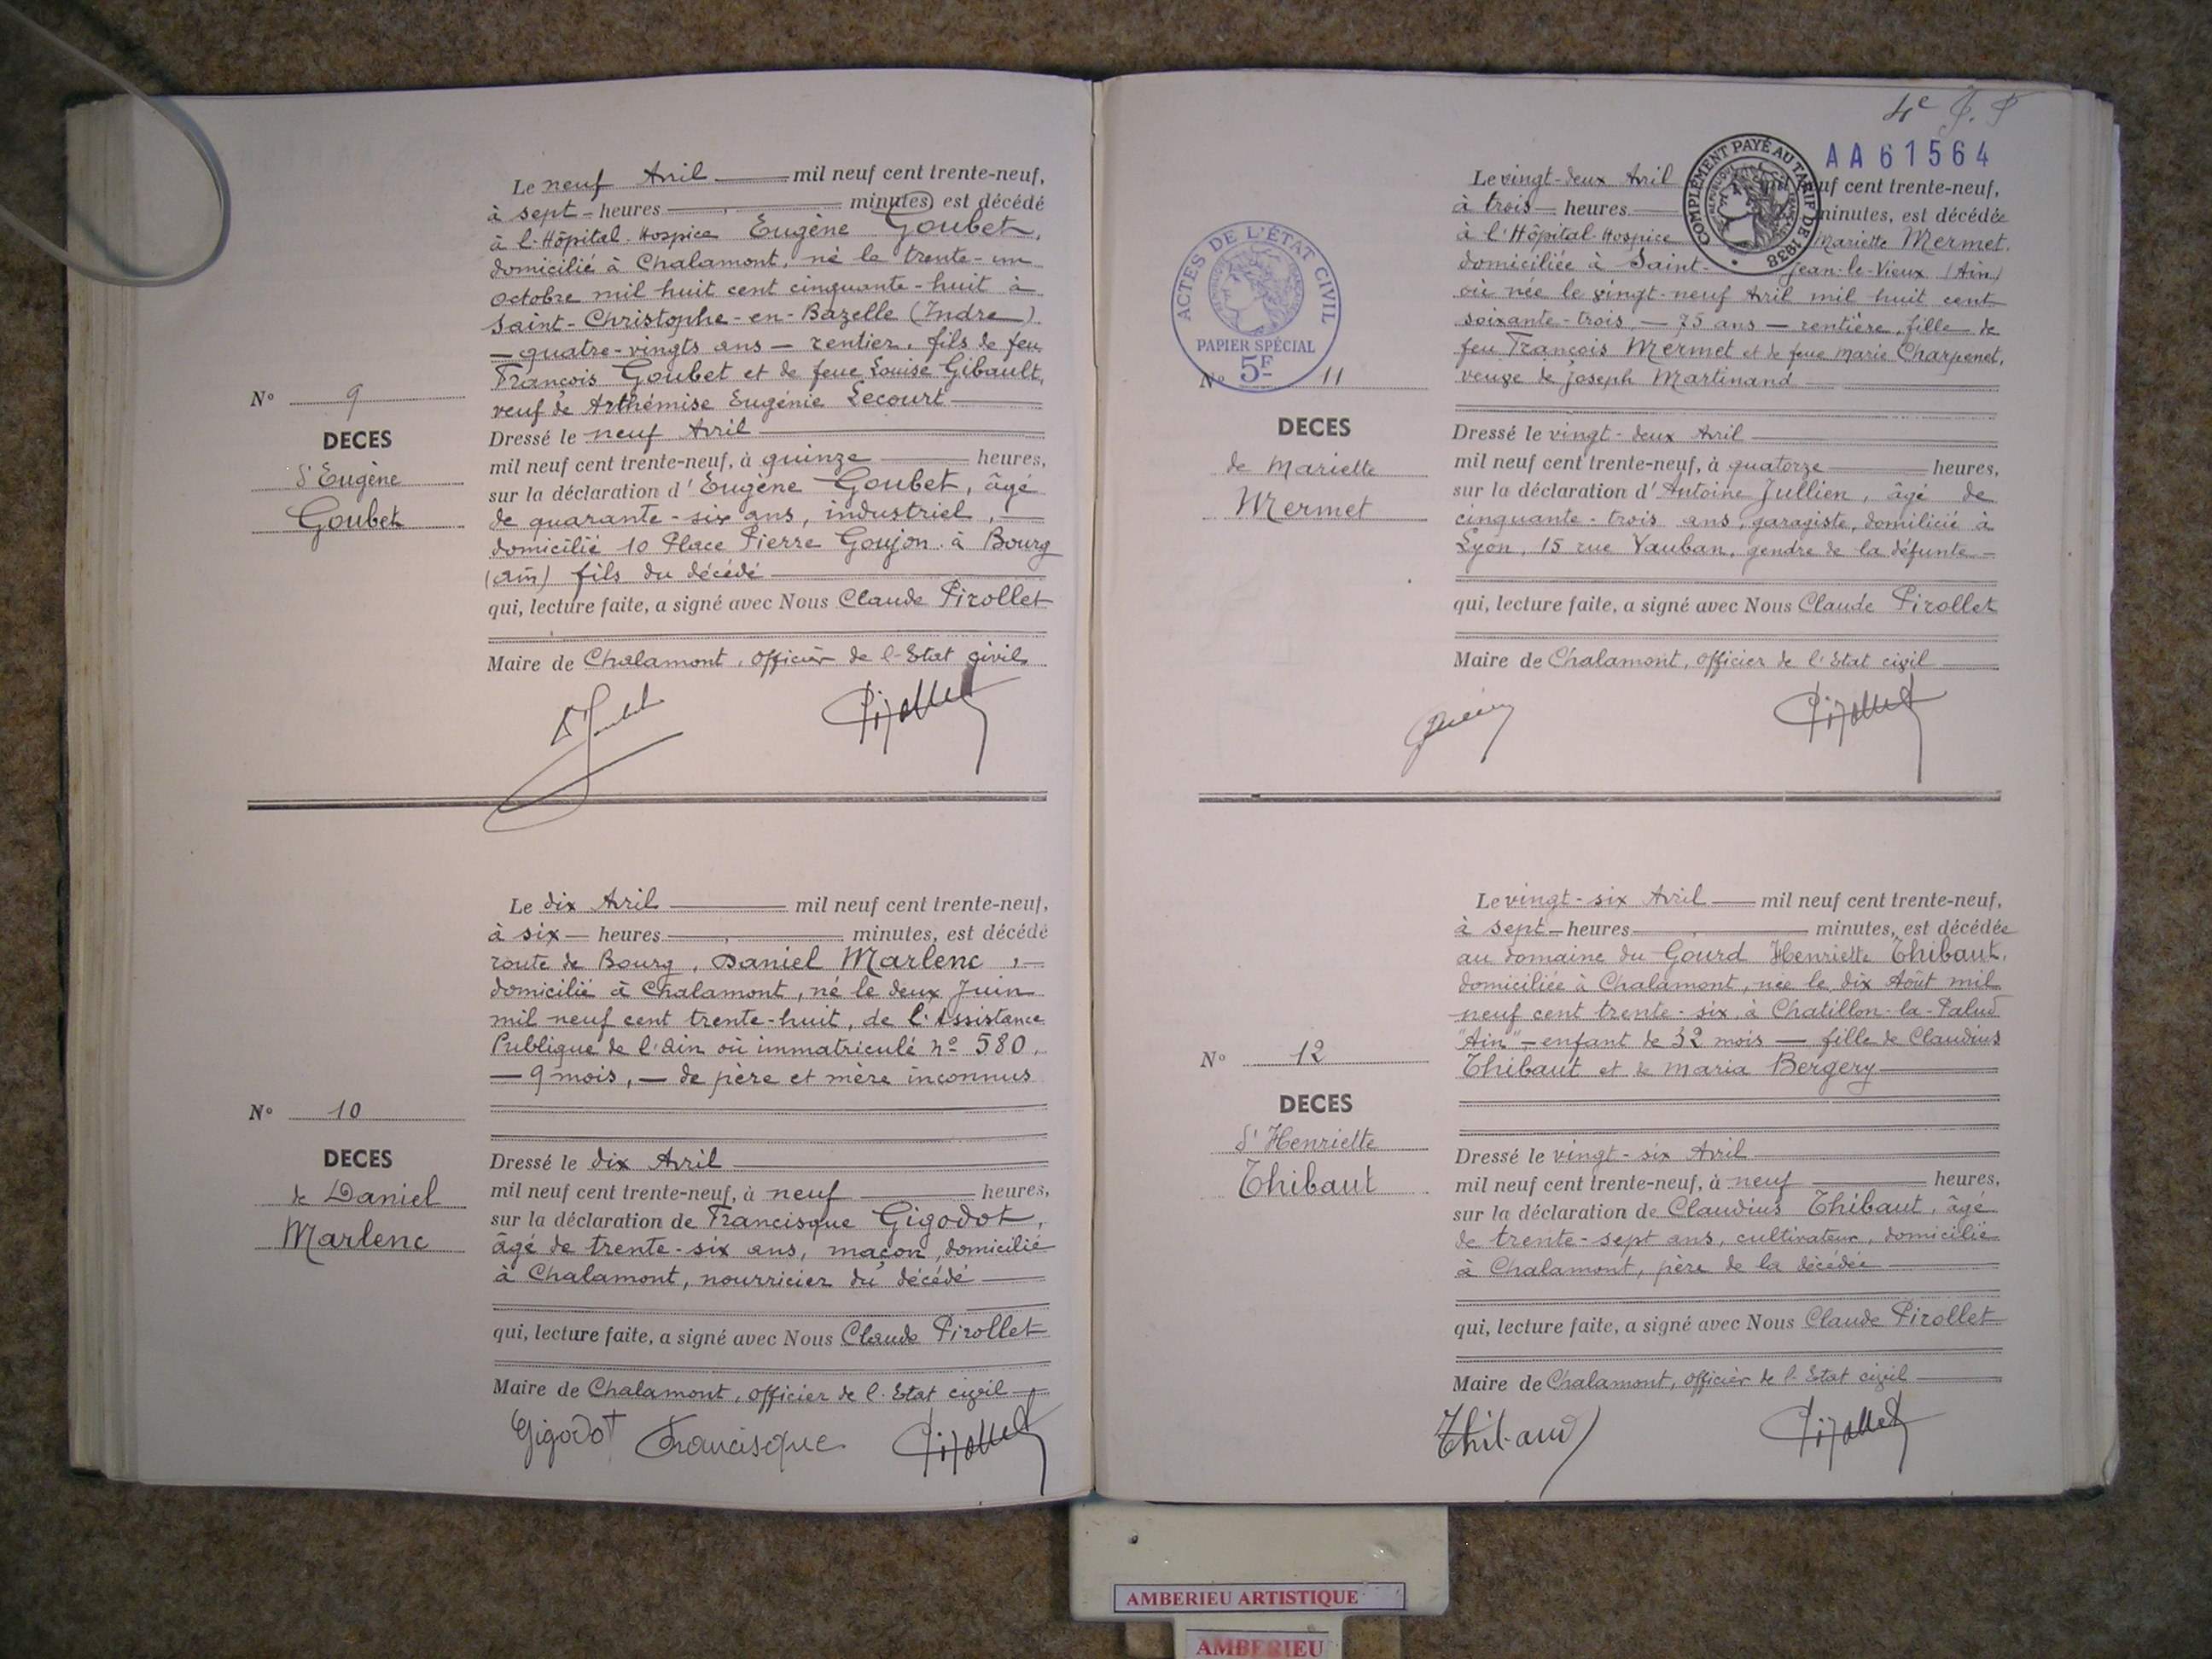 Le neuf Avril mil neuf cent trente-neuf,
à sept heures minutes est décédé
à l'Hôpital-Hospice Eugène Goubet,
domicilié à Chalamont, né le trente-un
octobre mil huit cent cinquante-huit à
Saint-Christophe-en-Bazelle (Indre)
— quatre-vingts ans — rentier, fils de feu
François Goubet et de feue Louise Gibault,
veuf de Arthémise Eugénie Lecourt
Nº 9
DECES
d'Eugène
Goubet
Dressé le neuf Avril
mil neuf cent trente-neuf, à quinze heures,
sur la déclaration d'Eugène Goubet, âgé
de quarante-six ans, industriel,
domicilié 10 Place Pierre Goujon à Bourg
(Ain) fils du décédé
qui, lecture faite, a signé avec Nous Claude Pirollet
Maire de Chalamont, officier de l'Etat civil
Pirollet
Le dix Avril mil neuf cent trente-neuf,
à six heures minutes, est décédé
route de Bourg, Daniel Marlenc,
domicilié à Chalamont, né le deux Juin
mil neuf cent trente-huit, de l'Assistance
Publique de l'Ain où immatriculé nº 580,
— 9 mois, — de père et mère inconnus
Nº 10
DECES
de Daniel
Marlenc
Dressé le dix Avril
mil neuf cent trente-neuf, à neuf heures,
sur la déclaration de Francisque Gigodot,
âgé de trente-six ans, maçon, domicilié
à Chalamont, nourricier du décédé
qui, lecture faite, a signé avec Nous Claude Pirollet
Maire de Chalamont, officier de l'Etat civil
Gigodot Francisque Pirollet
4e
AA61564
COMPLÉMENT PAYÉ AU TARIF DE 1938
Le vingt-deux Avril mil neuf cent trente-neuf,
à trois heures minutes, est décédée
à l'Hôpital-Hospice Mariette Mermet,
domiciliée à Saint-Jean-le-Vieux (Ain)
où née le vingt-neuf Avril mil huit cent
soixante-trois, — 75 ans — rentière, fille de
feu François Mermet et de feue Marie Charpenet,
veuve de Joseph Martinand
ACTES DE L'ÉTAT CIVIL
PAPIER SPÉCIAL
5F
Nº 11
DECES
de Mariette
Mermet
Dressé le vingt-deux Avril
mil neuf cent trente-neuf, à quatorze heures,
sur la déclaration d'Antoine Jullien, âgé de
cinquante-trois ans, garagiste, domicilié à
Lyon, 15 rue Vauban, gendre de la défunte
qui, lecture faite, a signé avec Nous Claude Pirollet
Maire de Chalamont, officier de l'Etat civil
Pirollet
Le vingt-six Avril mil neuf cent trente-neuf,
à sept heures minutes, est décédée
au domaine du Gourd Henriette Thibaut,
domiciliée à Chalamont, née le dix Août mil
neuf cent trente-six, à Chatillon-la-Palud
"Ain" — enfant de 32 mois — fille de Claudius
Thibaut et de Maria Bergery
Nº 12
DECES
d'Henriette
Thibaut
Dressé le vingt-six Avril
mil neuf cent trente-neuf, à neuf heures,
sur la déclaration de Claudius Thibaut, âgé
de trente-sept ans, cultivateur, domicilié
à Chalamont, père de la décédée
qui, lecture faite, a signé avec Nous Claude Pirollet
Maire de Chalamont, officier de l'Etat civil
Thibaud Pirollet
AMBERIEU ARTISTIQUE
AMBERIEU